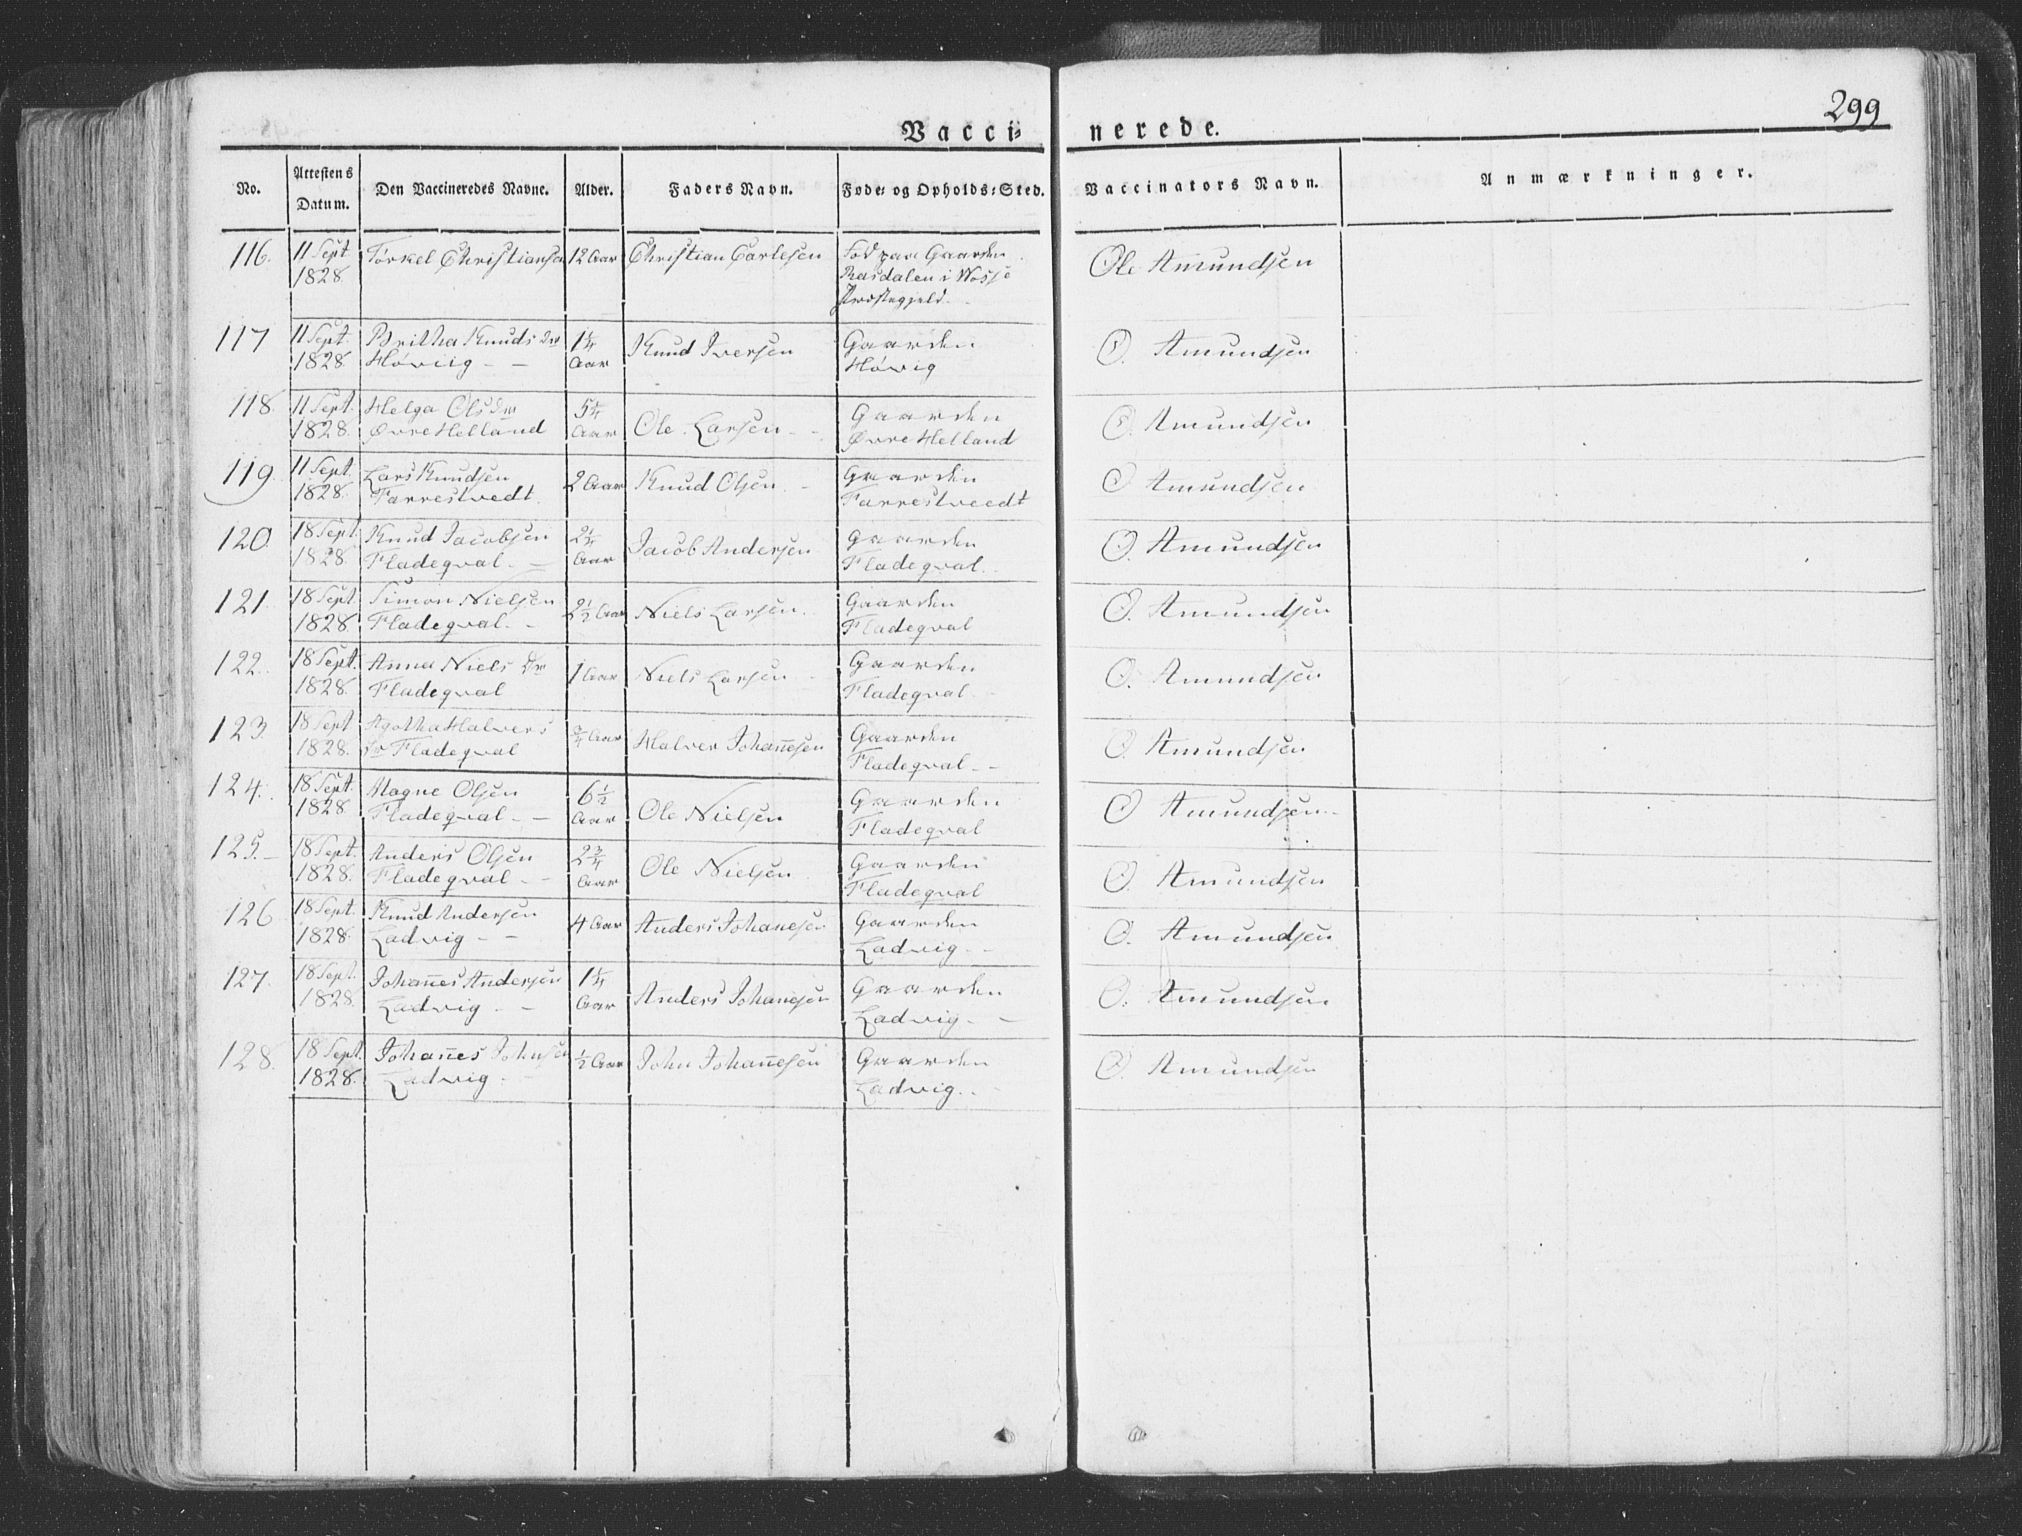 299
Vacci= nerede.
No. Attestens Datum. Den Vaccineredes Navne. Alder. Faders Navn. Føde= og Opholds=Sted. Vaccinators Navn. Anmærkninger.
116. 11 Sept 1828. Torkel Christiansen 12 Aar Christian Carlesen Fød paa Gaarden Rasdalen i Wosse Præstegjeld. Ole Amundsen
117 11 Sept. 1828. Britha Knuds Dr Høviig 1¼ Aar Knud Iversen Gaarden Høvig O. Amundsen
118. 11 Sept. 1828. Helga Olsdr Øvre Helland 5¼ Aar Ole Larsen Gaarden Øvre Helland O. Amundsen
119 11 Sept. 1828. Lars Knudsen Farrestvedt. 2 Aar Knud Olsen Gaarden Farrestveedt O Amundsen
120. 18 Sept. 1828. Knud Jacobsen Fladeqval. 2¼ Aar Jacob Andersen Gaarden Fladeqval. O. Amundsen
121. 18 Sept. 1828 Simon Nielsen Fladeqval. 2½ Aar Niels Larsen. Gaarden Fladeqval O. Amundsen
122. 18 Sept. 1828. Anna Niels Dr Fladeqval 1 Aar Niels Larsen Gaarden Fladeqval. O. Amundsen
123. 18 Sept 1828. Agotha Halvers Dr Fladeqval ¾ Aar Halver Johannesen Gaarden Fladeqval. O Amundsen
124. 18 Sept. 1828 Magne Olsen Fladeqval. 6½ Aar Ole Nielsen Gaarden Fladeqval O Amundsen
125. 18 Sept. 1828. Anders Olsen Fladeqval. 2¾ Aar Ole Nielsen Gaarden Fladeqval O. Amundsen
126 18 Sept. 1828. Knud Andersen Ladvig 4 Aar Anders Johanesen Gaarden Ladvig. O. Amundsen
127. 18 Sept. 1828. Johannes Andersen Ladvig. 1¼ Aar Anders Johanesen Gaarden Ladvig. O. Amundsen
128. 18 Sept. 1828. Johannes Johnsen Ladvig. ½ Aar John Johannesen Gaarden Ladvig. O Amundsen